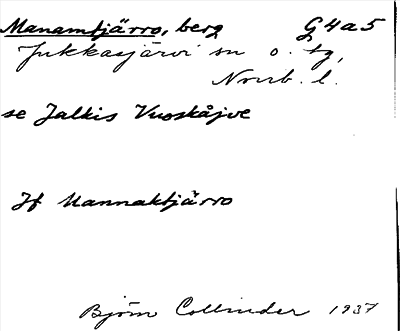 Manamtjärro, berg G4a5
Jukkasjärvi sn o. tg,
Norrb. l.
se Jalkis Vuoskåjve
Jf Mannaktjärro
Björn Collinder 1937